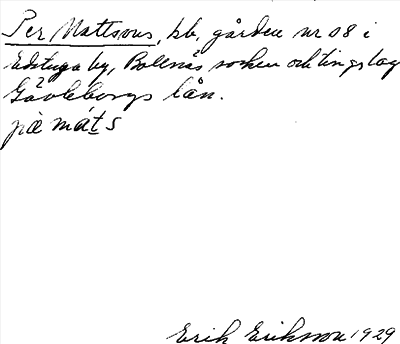 Per Mattsons, kb, gården nr 08 i
Edstuga by, Bollnäs socken och tingslag
Gävleborgs län.
pæ máts
Erik Eriksson 1929